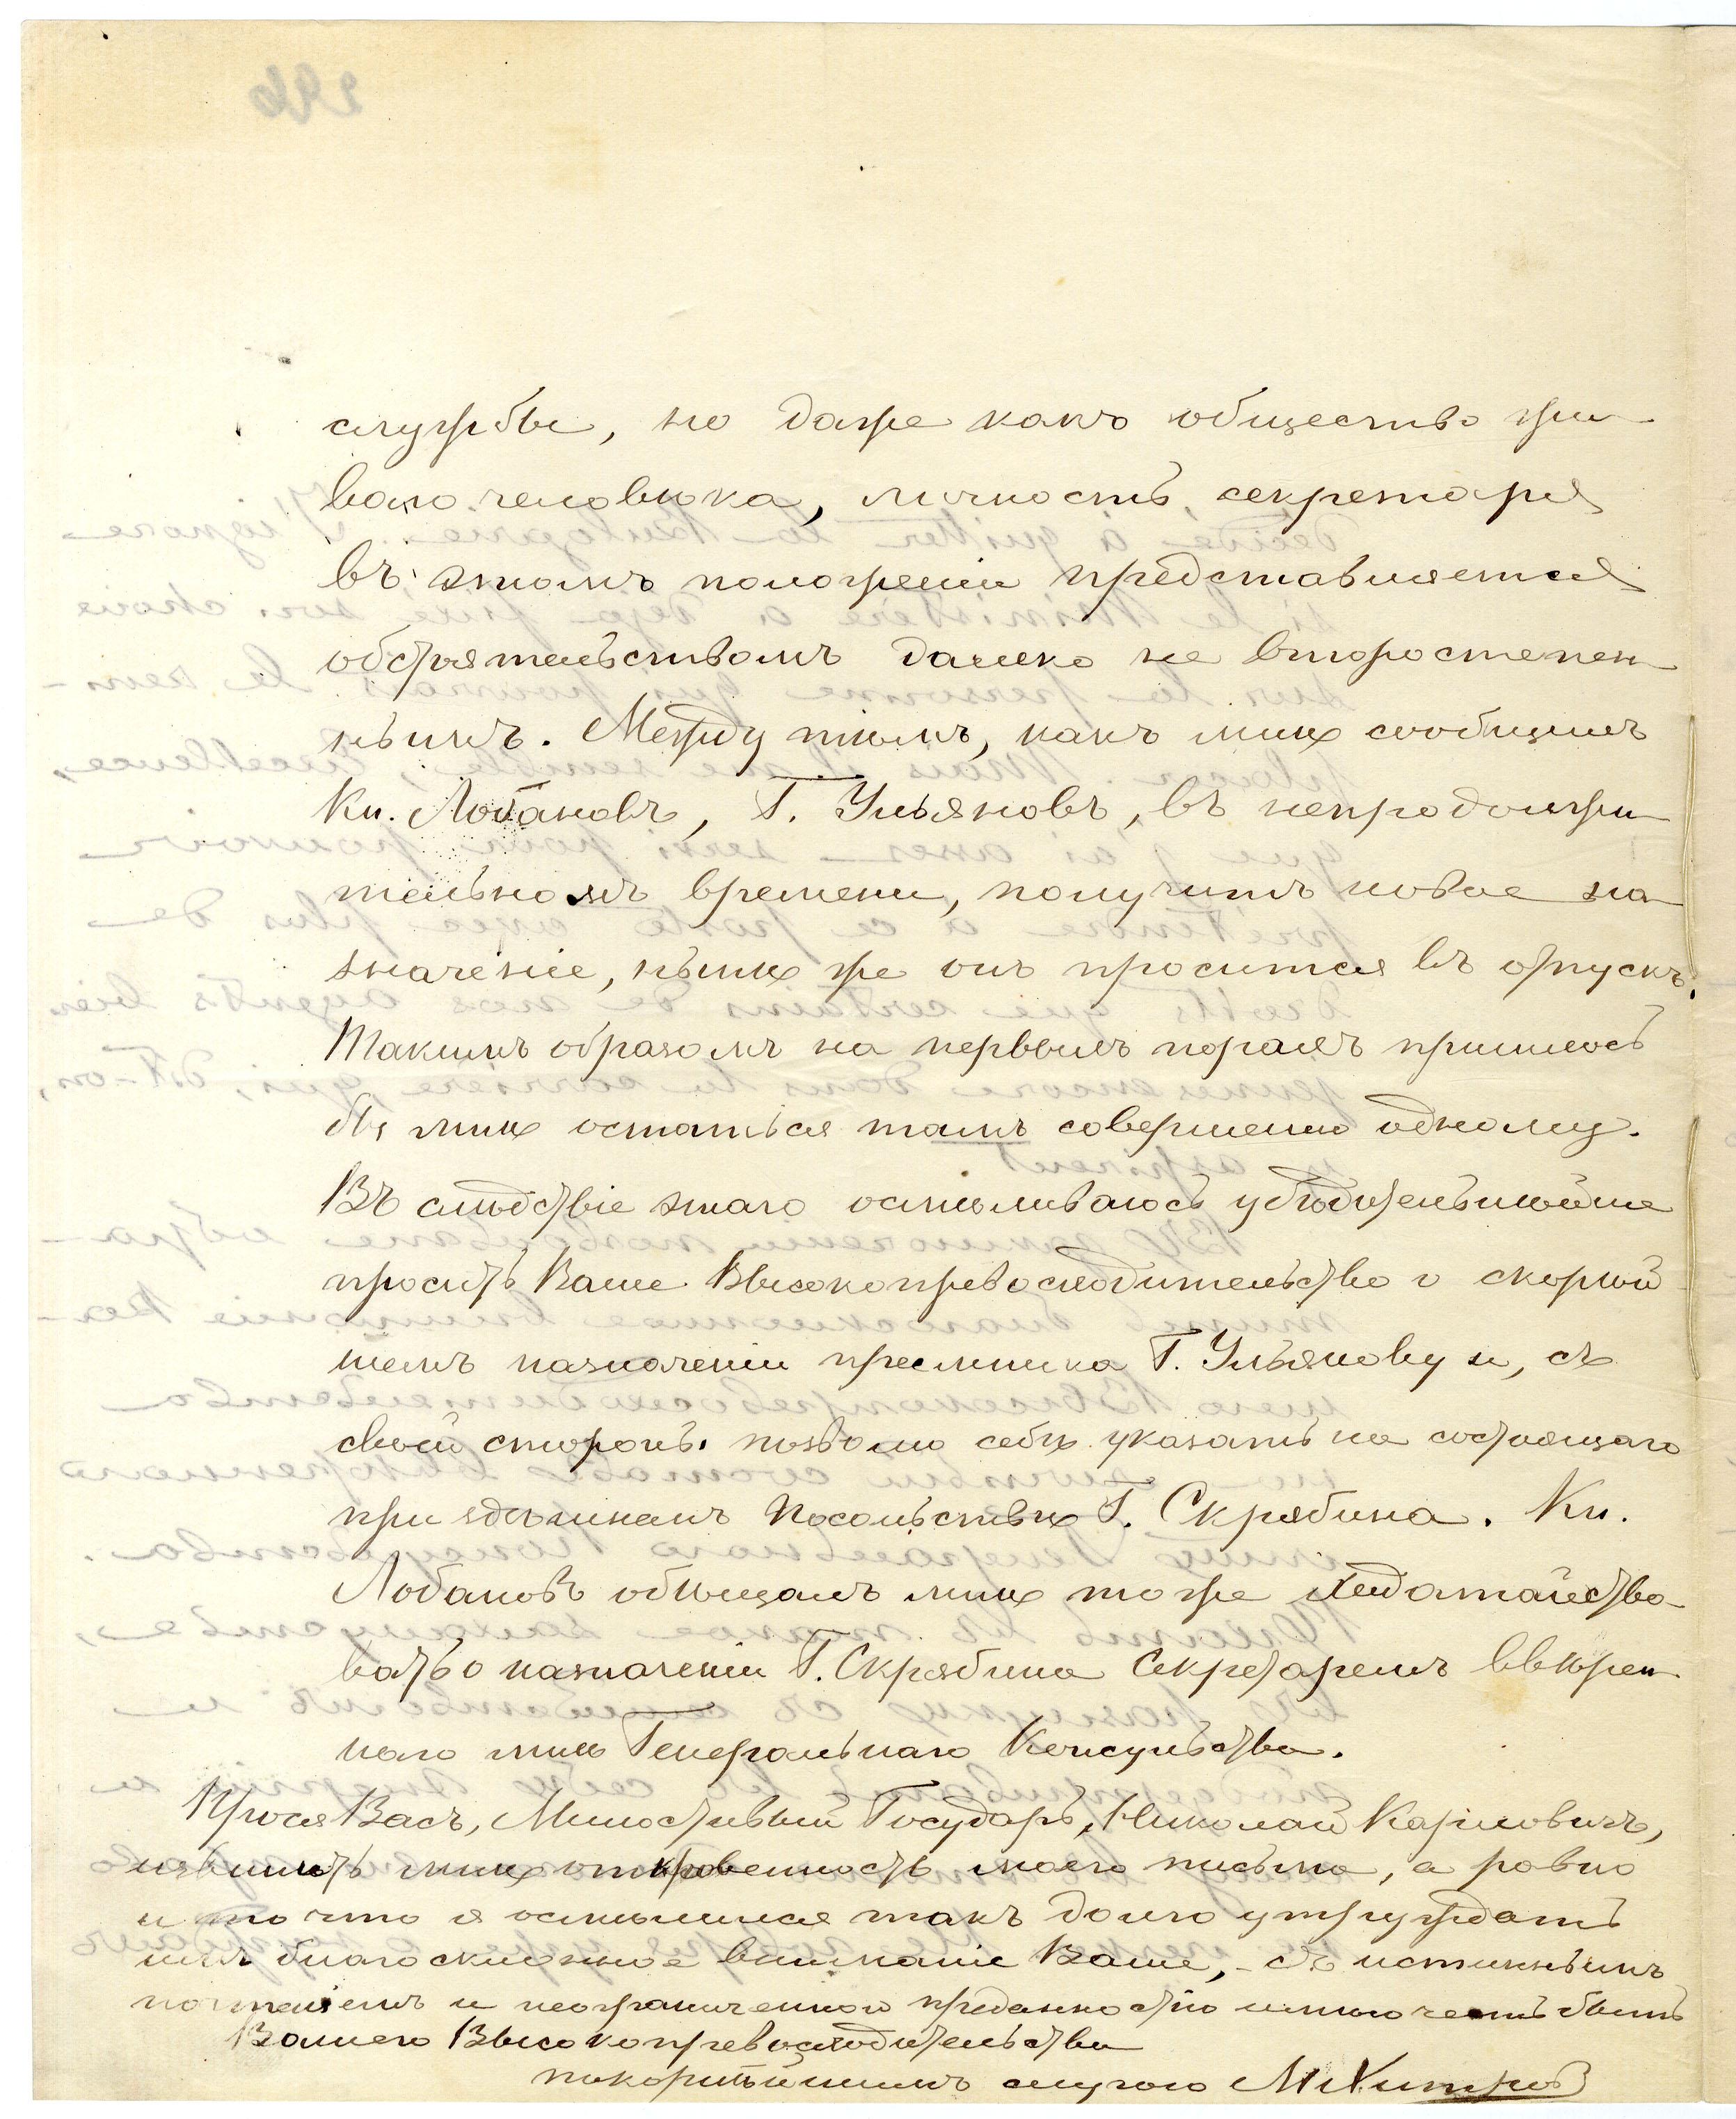 службы, но даже какъ общество жи-
ваго человѣка, личность секретаря
въ этомъ положеніи представляется
обстоятельствомъ далеко не второстепен-
нымъ. Между тѣмъ, какъ мнѣ сообщилъ
Кн. Лобановъ, Г. Ульяновъ, въ непродолжи-
тельномъ времени, получитъ новое на-
значеніе, нынѣ же онъ просится въ отпускъ.
Такимъ образомъ на первыхъ порахъ пришлось
бы мнѣ остаться тамъ совершенно одному.
Въ слѣдствіе этаго осмѣливаюсь убѣдительнѣйше
просить Ваше Высокопревосходительство о скорѣй-
шемъ назначеніи преемника Г. Ульянову и, съ
своей стороны, позволю себѣ указать на состоящаго
при здѣшнемъ Посольствѣ Г. Скрябина. Кн.
Лобановъ обѣщалъ мнѣ тоже ходатайство-
вать о назначеніи Г. Скрябина Секретаремъ ввѣрен-
наго мнѣ Генеральнаго Консульства.
Прося Васъ, Милостивый Государь, Николай Карловичъ,
извинить мнѣ откровенность моего письма, а равно
и то что я осмѣлился такъ долго утруждать
имъ благосклонное вниманіе Ваше, - съ истиннымъ
почтеніемъ и неограниченною преданностію имѣю честь быть
Вашего Высокопревосходительства
покорнѣйшимъ слугою М Хитрово